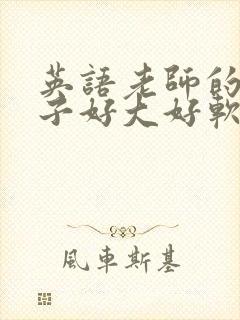 英語老師的
子好大好軟
風車斯基